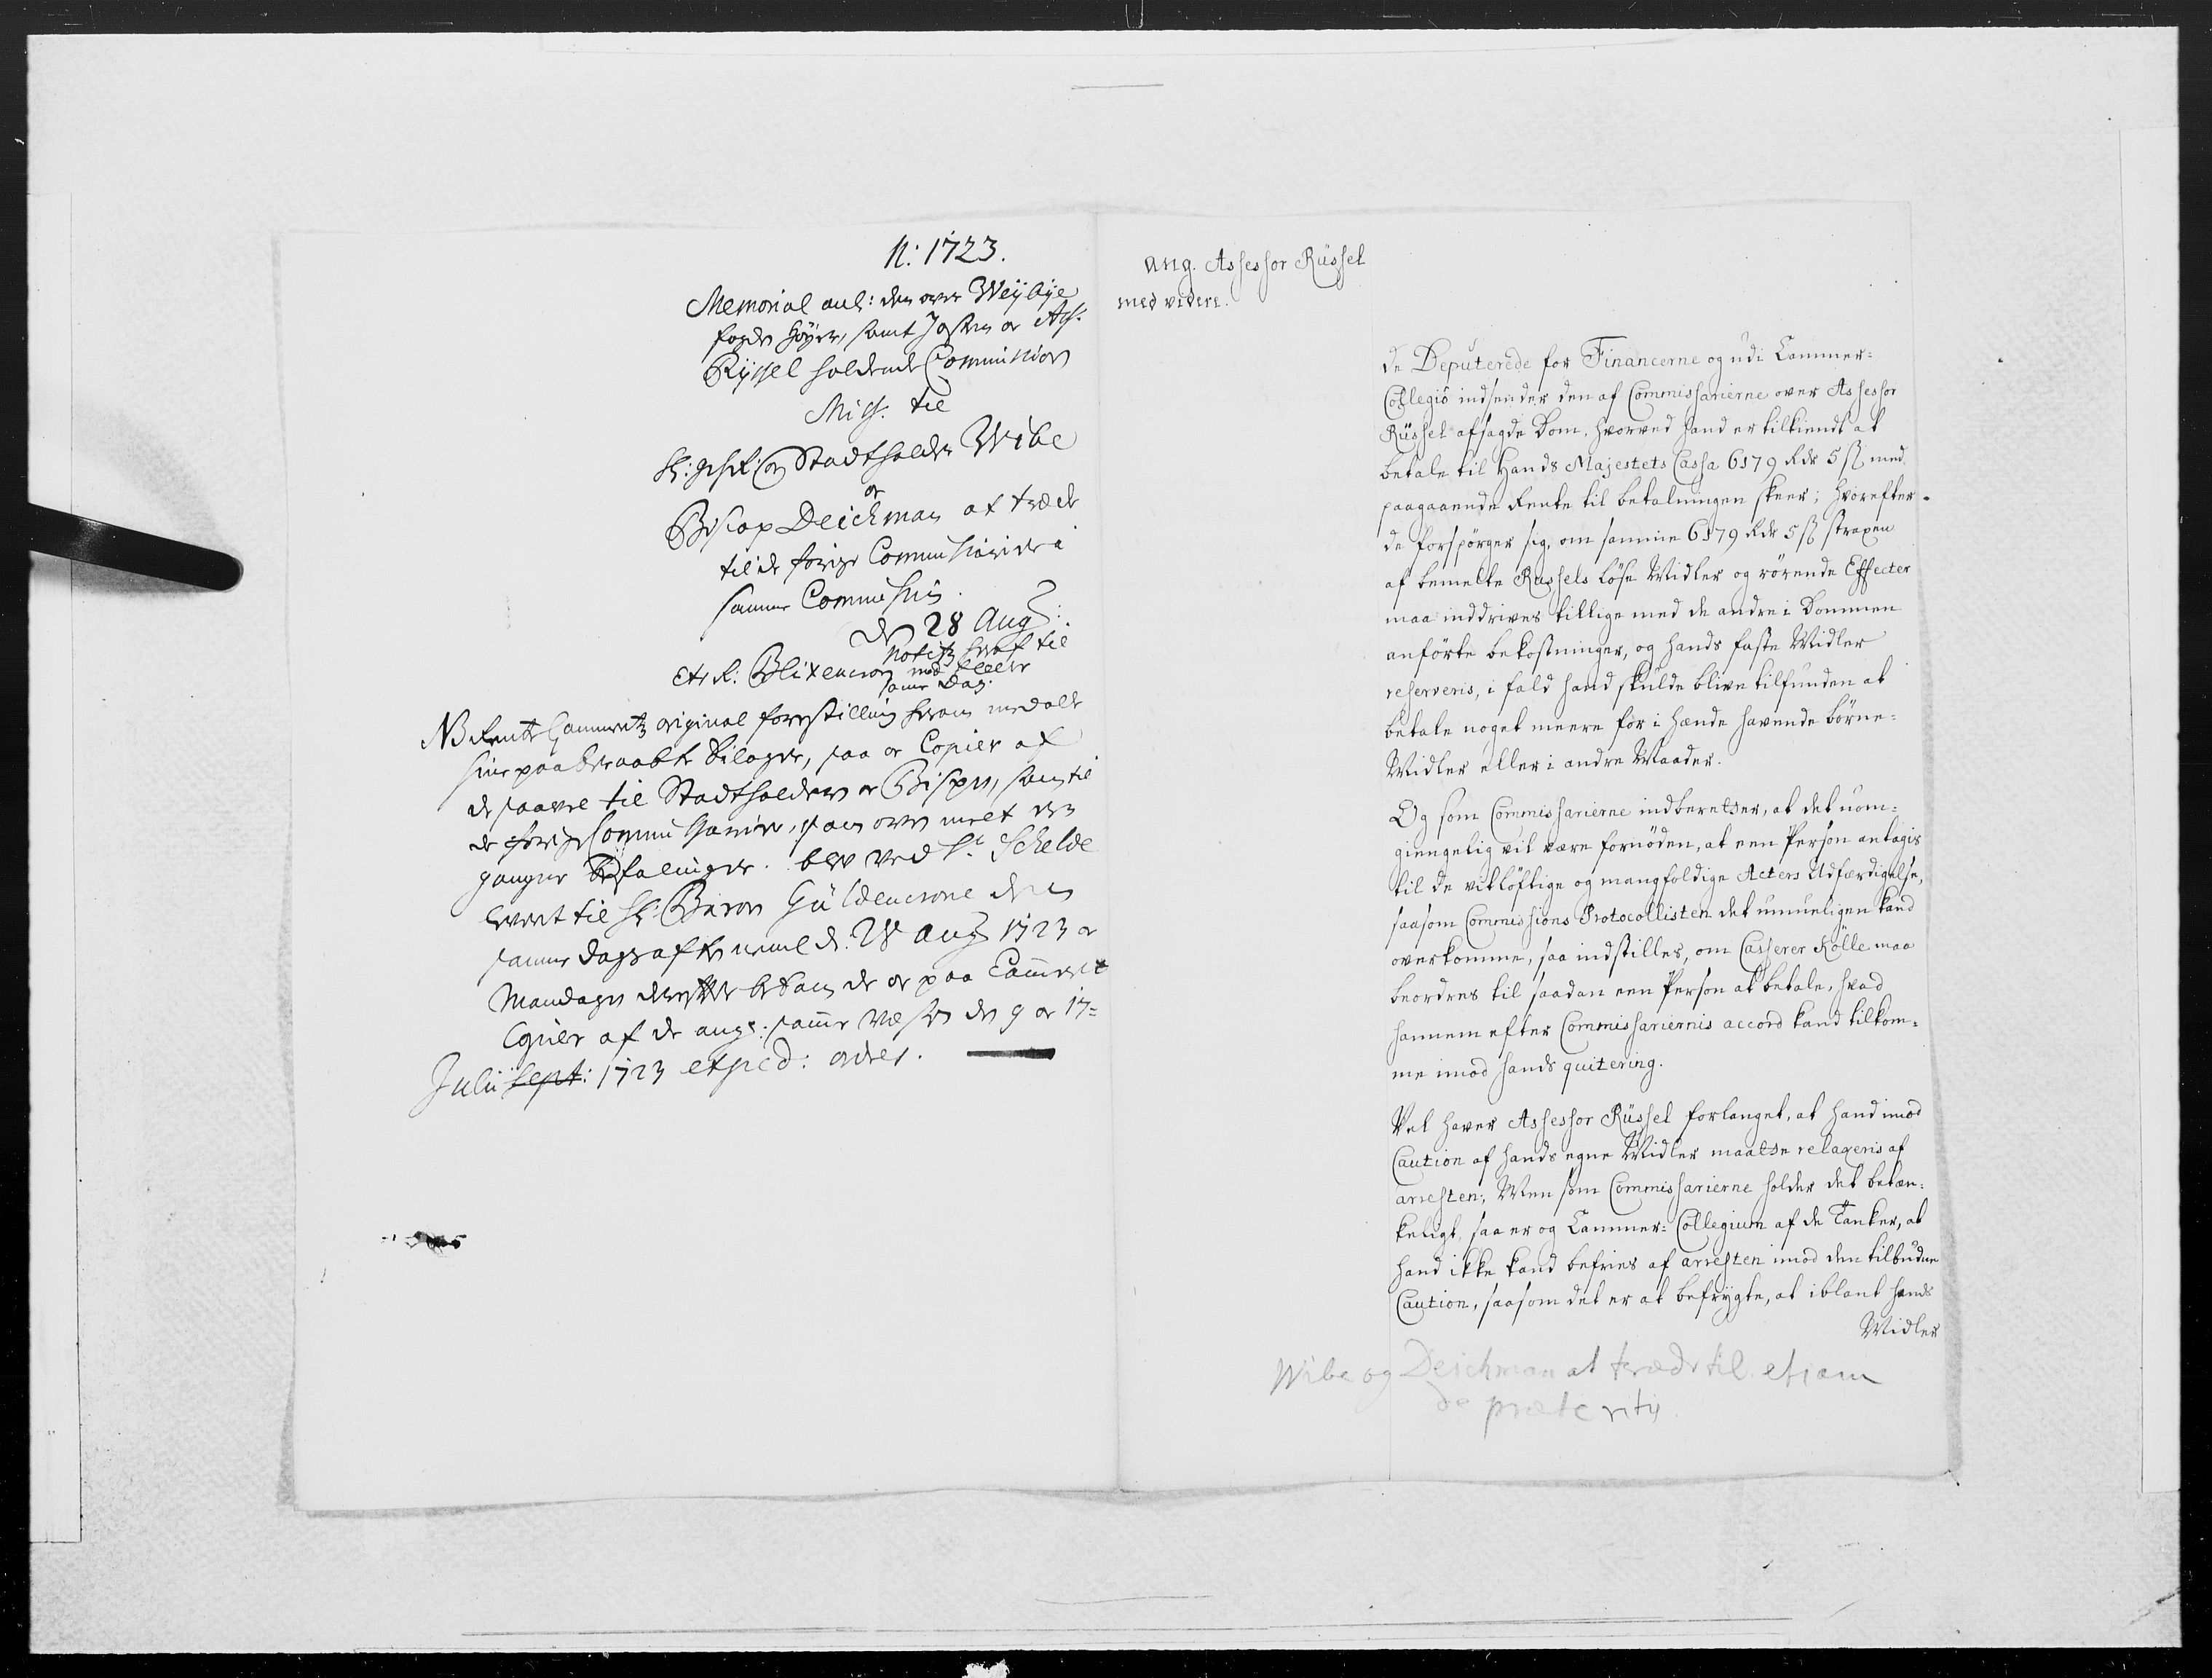 N: 1723.
Memorial anl: den over Weybye
fogden Høyer, samt Justen og Ass:
Ryssel holdende Commission
Miss. til
H: geh: R: og Stadtholder Wibe
og
Biscop Deichman at træde
til de forige Commissarier i
samme Commission.
d. 28 Aug:
Notitz heraf til
Etz R: Blixencron med
samme Dag.
NB Rente Cammeretz original forestilling herom med alle
sine paaberaabte bilager, saa og Copier af
de saavel til Stadtholderen og Bispen, som til
de forige Commissarier, som oven melt er
gangne Befalinger. blev ved Sr. Schelde
levert til H: Baron Güldencrone den
samme dags aften neml d. 28 Aug 1723 og
Mandagen derefter bekom de og paa Cammeret
Copier af de ang: samme væsen den 9 og 17=
Julii Sept: 1723 exped: ordres.
ang. Assessor Rüssel
med videre.
de Deputerede for Financerne og udi Cammer=
Collegio indsender den af Commissarierne over Assessor
Rüssel afsagde Dom, hvorved hand er tilkiendt at
betale til Hands Majestets Cassa 6179 Rdr 5 ß med
paagaaende Rente til betalningen skeer; hvorefter
de forspörger sig, om samme 6179 Rdr 5 ß straxen
af bemelte Russels löse Midler og rörende Effecter
maa inddrives tillige med de andre i Dommen
anförte bekostninger, og hands faste Midler
reserveris, i fald hand skulde blive tilfunden at
betale noget meere for i hænde havende börne=
Midler eller i andre Maader.
Og som Commissarierne indberetter, at det uom=
giengelig vil være fornöden, at een Person antagis
til de vitlöftige og mangfoldige Acters Udfærdigelse,
saasom Commissions Protocollisten det umueligen kand
overkomme, saa indstilles, om Casserer Kölle maa
beordres til saadan een Person at betale, hvad
hannem efter Commissariernis accord kand tilkom=
me imod hands quitering.
Vel haver Assessor Rüssel forlanget, at hand imod
Caution af hands egne Midler maatte relaxeris af
arresten; Men som Commissarierne holder det betæn=
keligt, saa er og Cammer= Collegium af de Tanker, at
hand ikke kand befries af arresten imod den tilbudne
Caution, saasom det er at befrygte, at iblant hands
Midler
Wibe og Deichman at træde til etiam
de præteritis